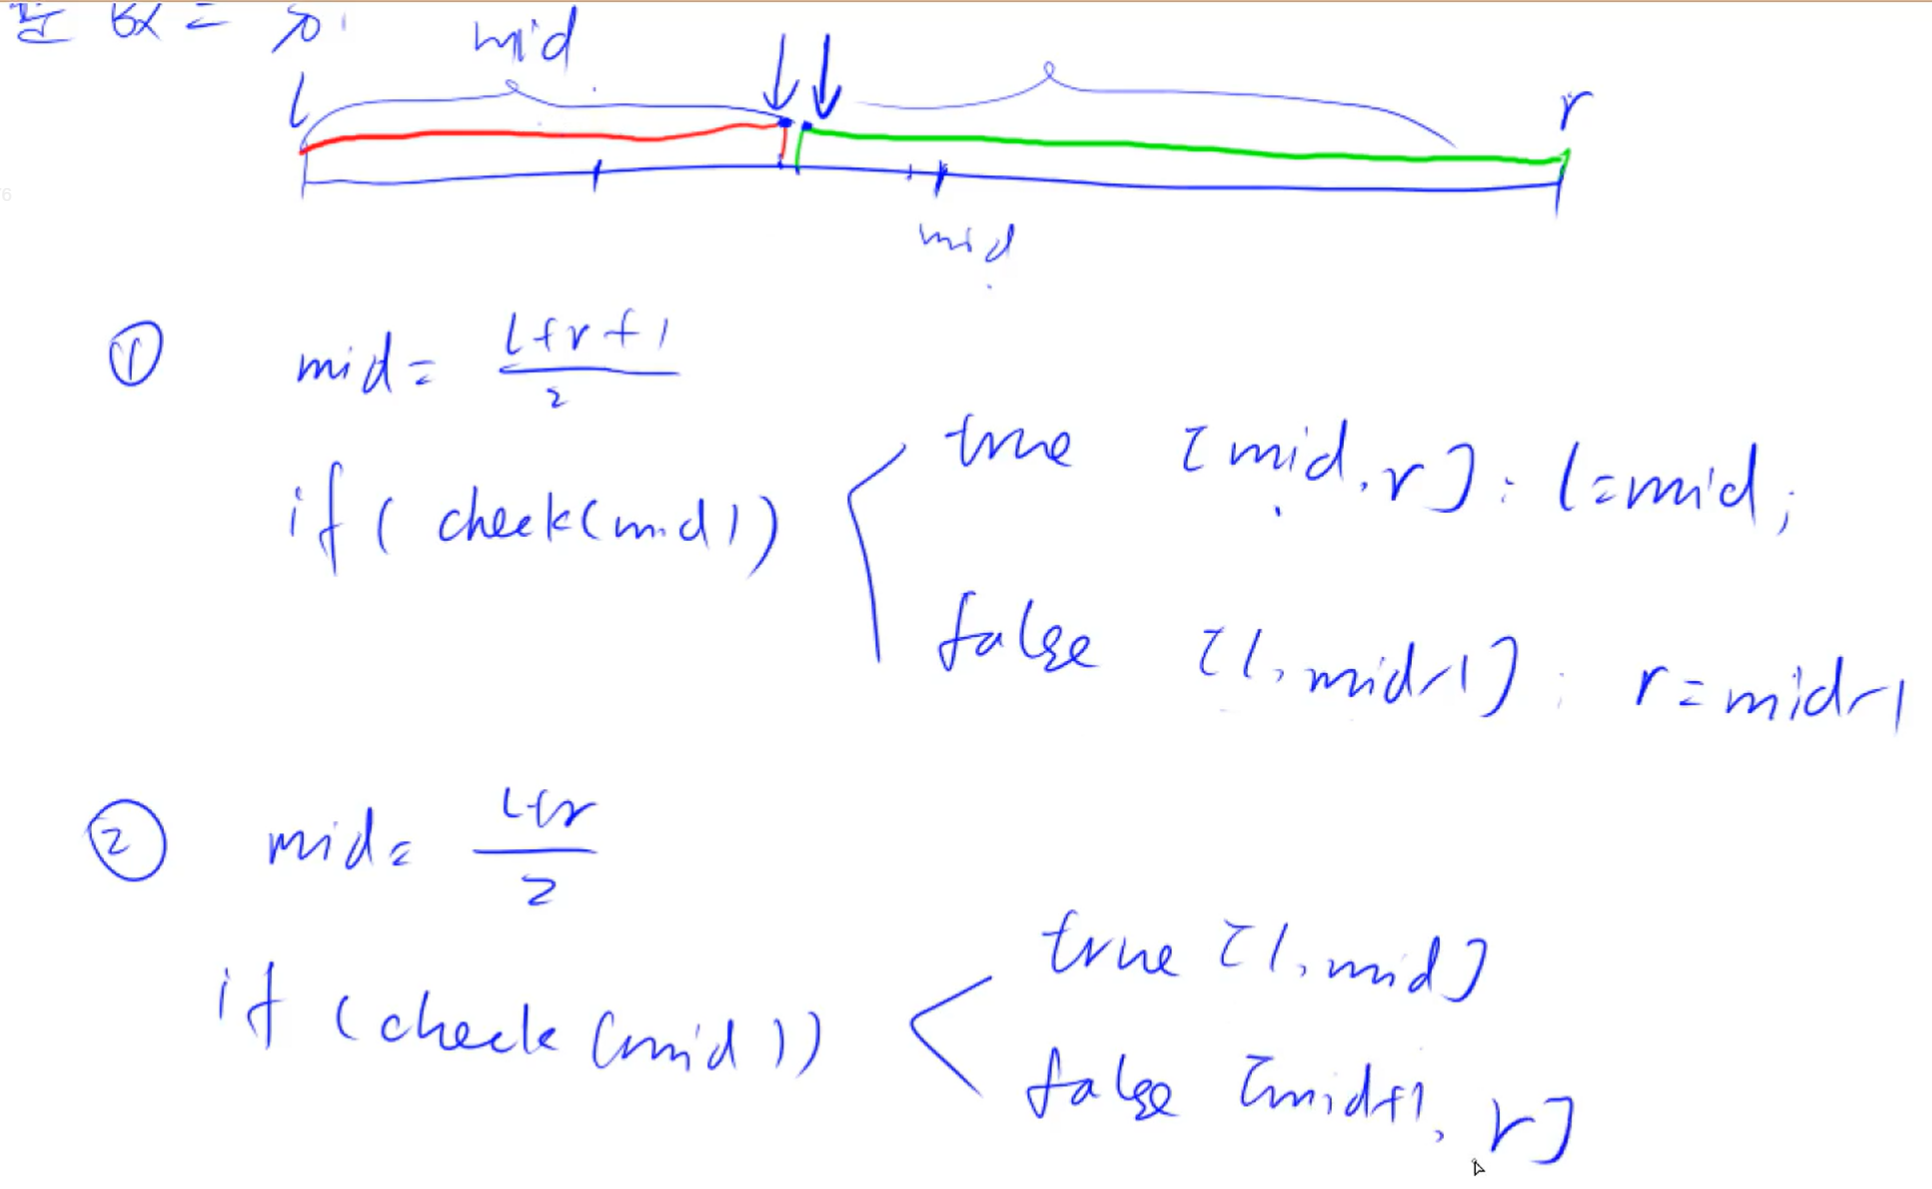 mid
l
r
mid
① mid = (l+r+1)/2
if ( check(mid)) true [mid, r] : l=mid;
false [l, mid-1] : r=mid-1
② mid = (l+r)/2
if (check (mid)) true [l, mid]
false [mid+1, r]